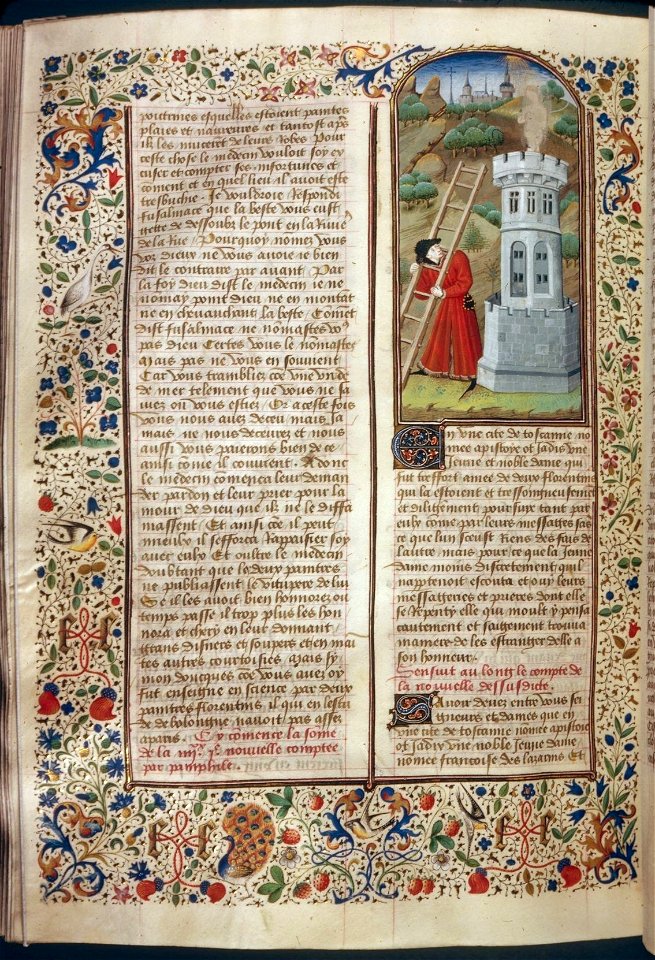 poutrines esquelles estoient paintes
plaies et navreures et tantost aps
ilz les mucerēt de leurs robes Pour
ceste chose le medecin vouloit soy ex
cuser et compter ses infortunes et
coment et en quel lieu il avoit este
tresbuchie . Je vouldroie Respondi
fusalmace que la beste vous eust
gette de dessoubz le pont en la Riuie
de la Rie / Pourquoy nomez vous
voz dieux ne vous avoie ie bien
dit le contraire par avant / Par
la foy dieu dist le medecin ie ne
nomay point dieu ne en montāt
ne en chevauchant la beste / Comēt
dist fusalmace ne nomastes voꝰ
pas dieu Certes vous le nomastes
Mais pas ne vous en souvient
Car vous trambliez cōe vne vnde
de mer telement que vous ne sa
uiez ou vous estiez / Or aceste fois
vous nous avez deceu mais Ja
mais ne nous decevrez et nous
aussi vous paierons bien de ce
ainsi cōme il couvient / Adonc
le medecin comenca leur deman
der pardon et leur prier pour la
mour de dieu que ilz ne le diffa
massent / Et ainsi cōe il peut
mieulx il sefforca Rappaisier soy
avec eulx Et oultre le medecin
doubtant que les deux paintres
ne publiassent le vitupere de lui
Se il les avoit bien honnorez ou
temps passe il trop plus les hon
nora et chery en leur donnant
grans disners et soupers et en mai
tes autres courtoisies / Mais sy
mon doncques cōe vous avez oy
fut enseigne en science par deux
paintres florentins il qui en lestu
de de bolongne navoit pas assez
apris . Cy comence la some
de la nouvelle comptee
par pamphile .
En vne cite de toscanne no
mee apistoye ot Jadis vne
Jeune et noble dame qui
fut tresfort amee de deux florentins
qui la estoient et tressongneusemēt
et diligemment pour fux tant par
eulx come par leurs messages sās
ce que lun sceust Riens des fais de
lautre mais pour ce que la Jeune
dame moins discretement quil
nappartenoit escouta et ouy leurs
messageries et prieres dont elle
se Repenty elle qui moult y pensa
cautement et saigement trouva
maniere de les estranger delle a
son honneur .
Sensuit au long le compte de
la nouvelle dessusdicte .
Savoir devez entre vous sei
gneurs et dames que en
vne cite de toscanne nomee apistoie
ot Jadix vne noble Jeune dame
nomee francoise des lazarins / Et